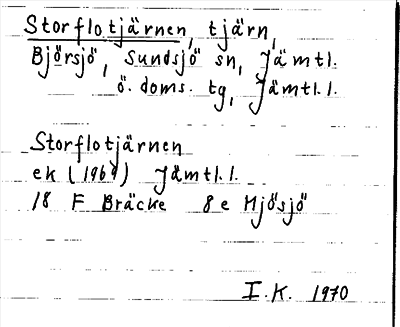 Storflotjärnen, tjärn,
Björsjö, Sundsjö sn, Jämtl.
ö. doms. tg, Jämtl.l.
Storflotjärnen
ek (1969) Jämtl.l.
18 F Bräcke 8e Mjösjö
I.K. 1970